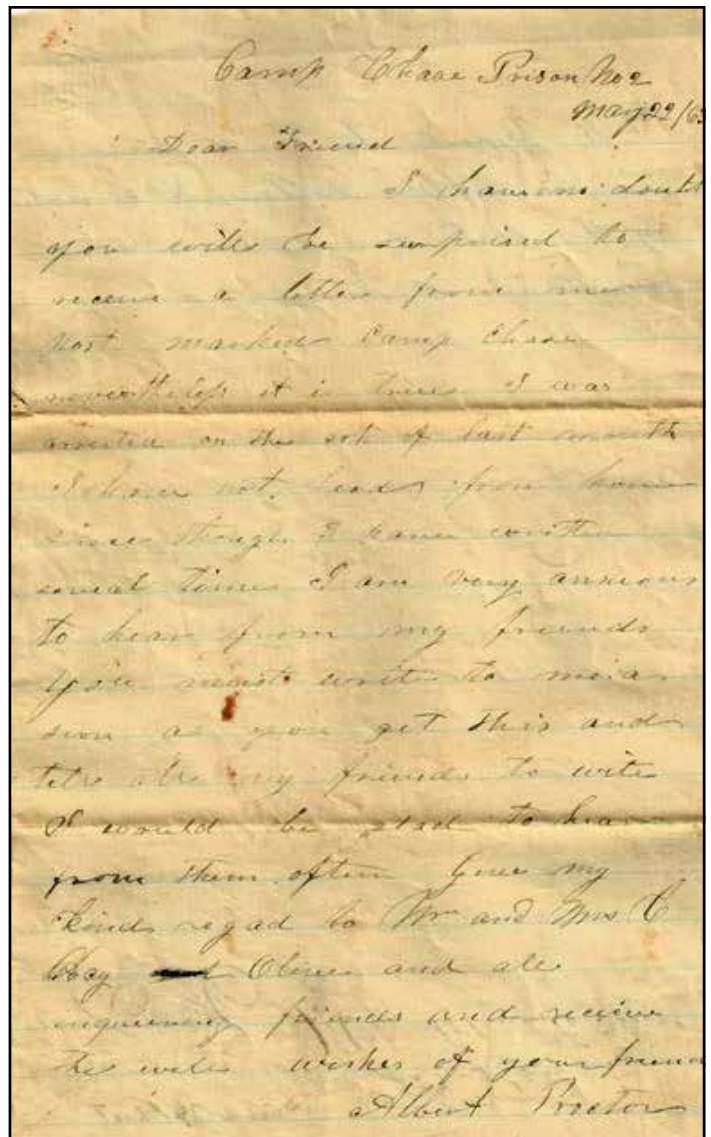 Camp Chase Prison No 2
May 22/63
Dear Friend
I have no doubt
you will be surprised to
receive a letter from me
Post marked Camp Chase
nevertheless it is true I was
arrested on the of last month
I have not heard from home
since though I have written
several times I am very anxious
to hear from my friends
you must write to me as
soon as you get this and
tell all my friends to write
I would be glad to hear
from them often Give my
kind regad to Mr and Mrs C
Hay Oliver and all
inquiring friends and receive
the well wishes of your friend
Albert Proctor